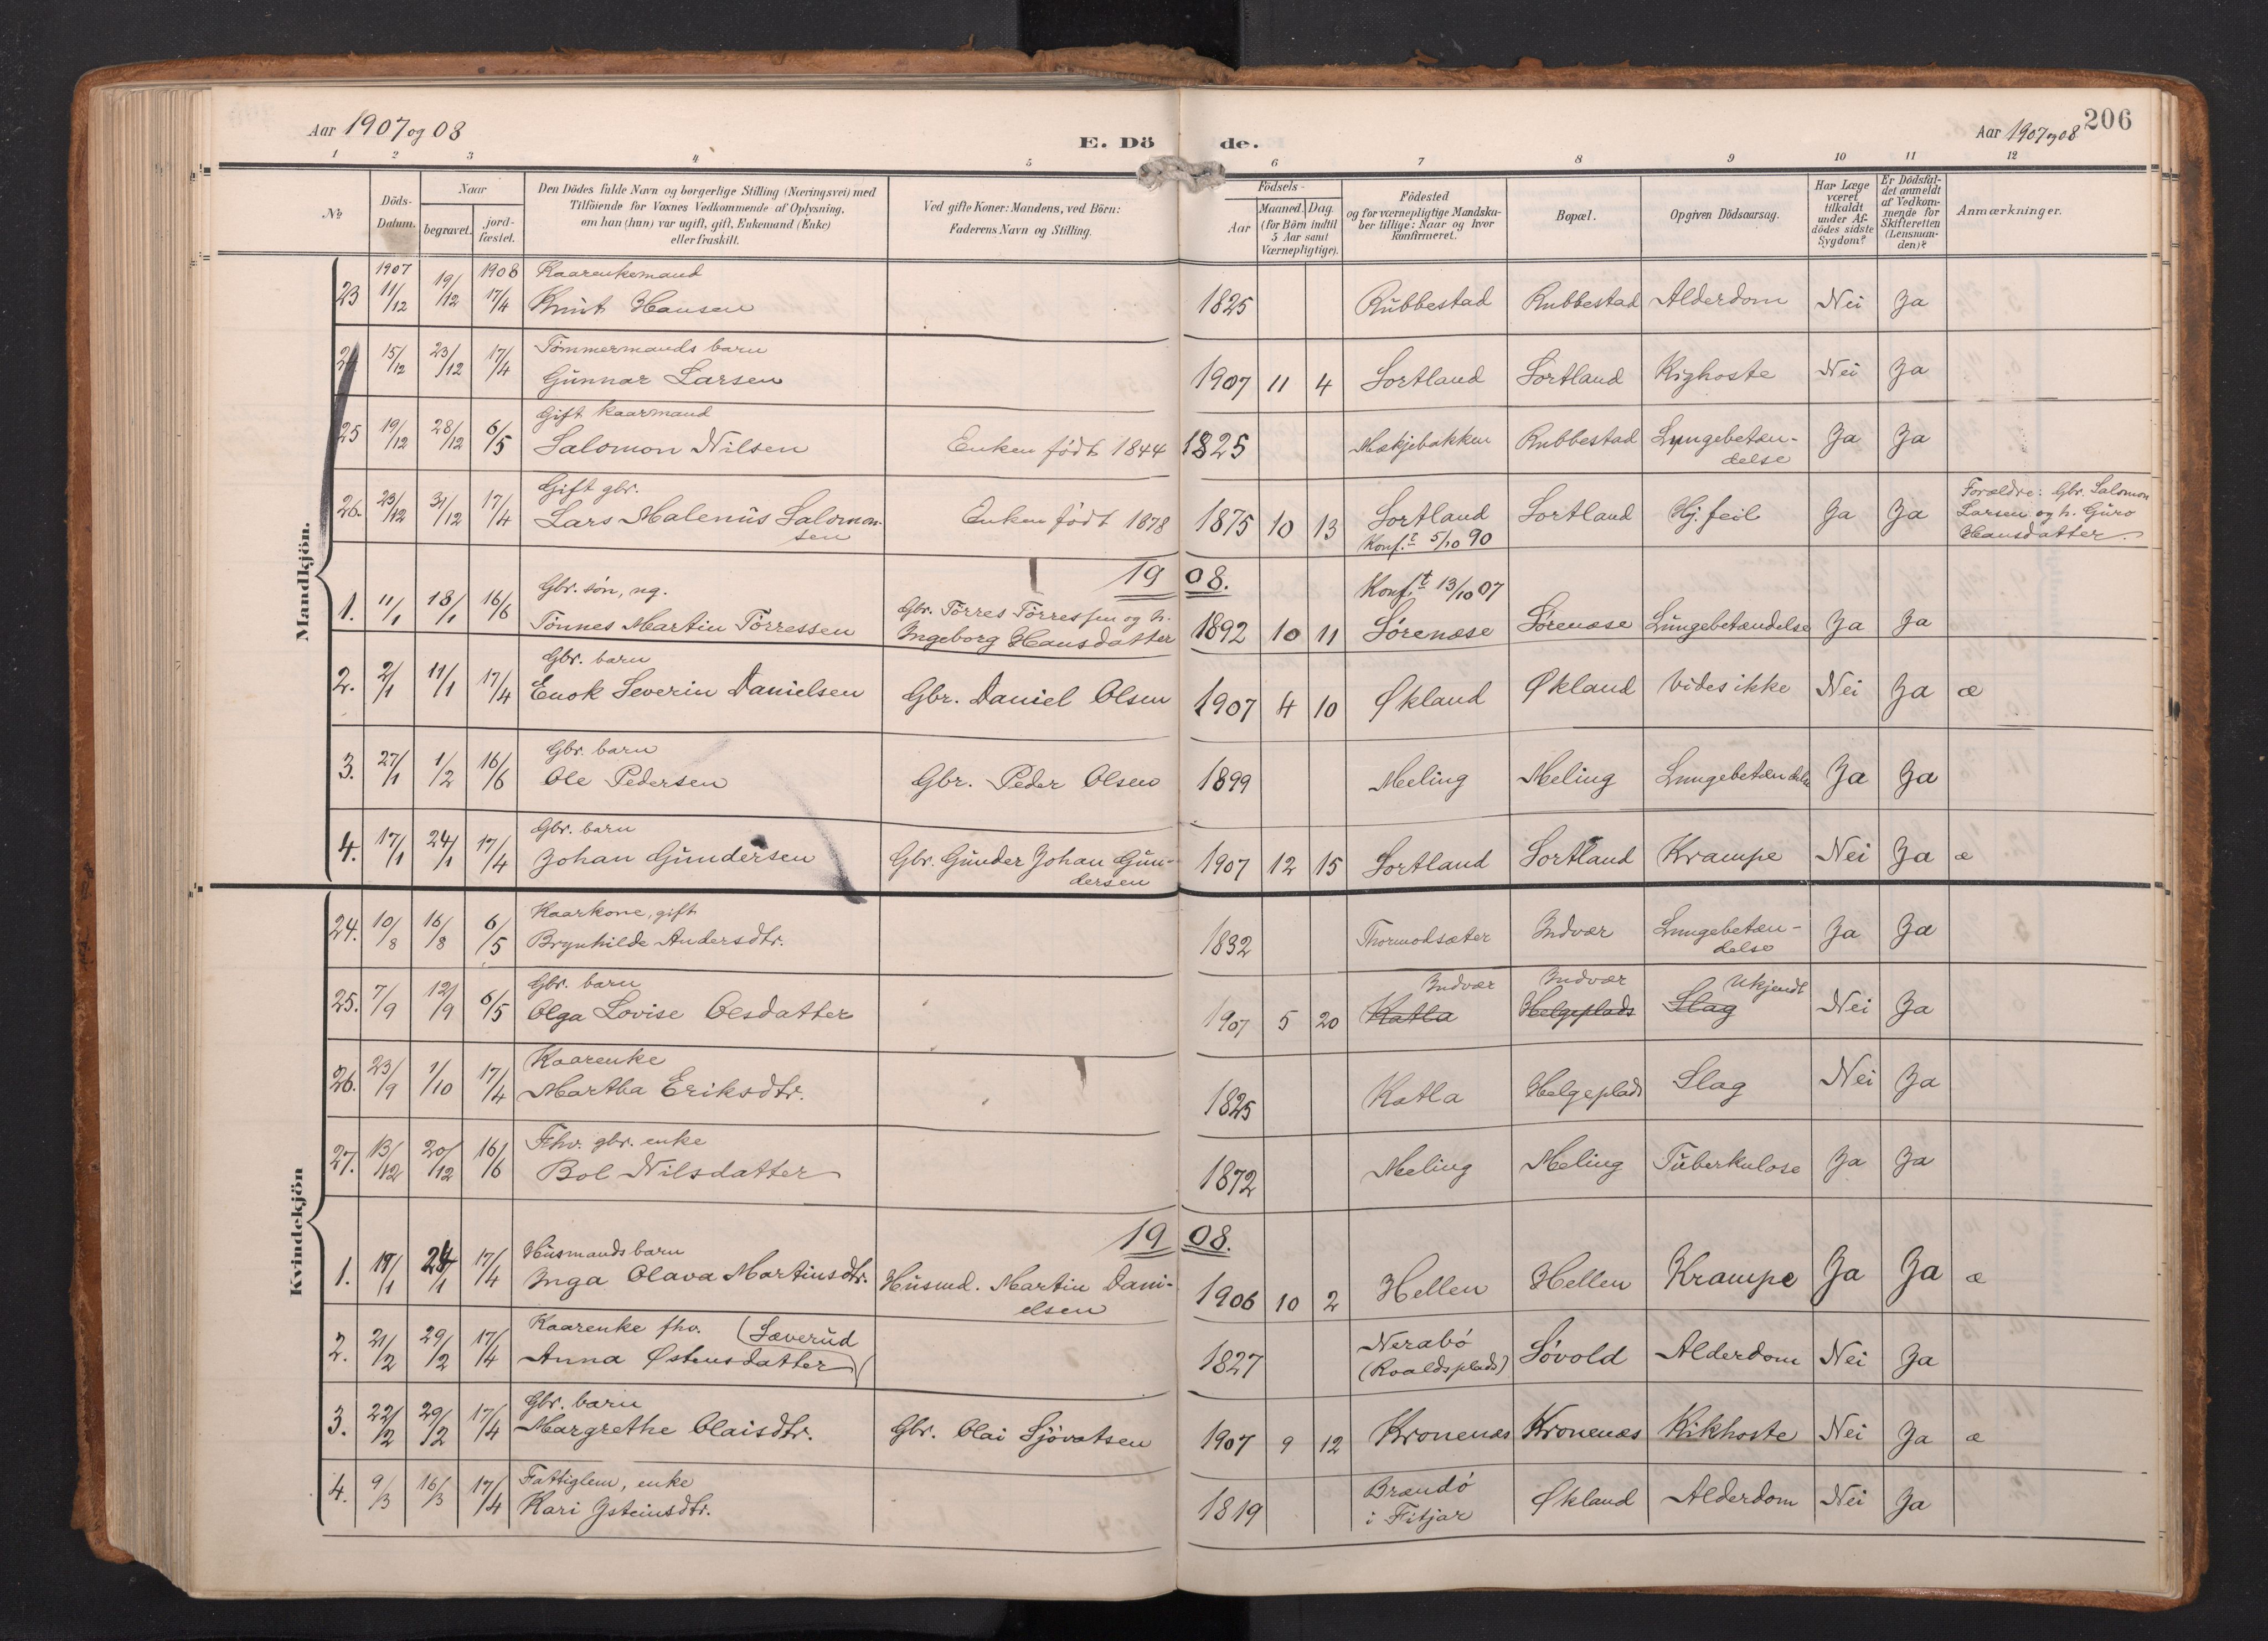 Aar 1907 og 08
E. Dö de.
Aar 1907 og 08
206
1 2 3 4 5 6 7 8 9 10 11 12
№
Döds-
Datum.
Naar
begravet.
jord-
fæstet.
Den Dödes fulde Navn og borgerlige Stilling (Næringsvei) med
Tilföiende for Voxnes Vedkommende af Oplysning,
om han (hun) var ugift, gift, Enkemand (Enke)
eller fraskilt.
Ved gifte Koner: Mandens, ved Börn:
Faderens Navn og Stilling.
Födsels-
Aar
Maaned. Dag.
(for Börn indtil
5 Aar samt
Værnepligtige).
Födested
og for værnepligtige Mandska-
ber tillige: Naar og hvor
konfirmeret.
Bopæl.
Opgiven Dödsaarsag.
Har Læge
været
tilkaldt
under Af-
dödes sidste
Sygdom?
Er Dödsfal-
det anmeldt
af Vedkom-
mende for
Skifteretten
(Lensman-
den)?
Anmærkninger.
Mandkjön.
1907 1908 Kaarenkemand
23 11/12 19/12 17/4 Knut Hansen 1825 Rubbestad Rubbestad Alderdom Nei Ja
Tømmermands barn
24 15/12 23/12 17/4 Gunnar Larsen 1907 11 4 Sortland Sortland Kighoste Nei Ja
Gift kaarmand
25 19/12 28/12 6/5 Salomon Nilsen Enken født 1844 1825 Mækjebakken Rubbestad Lungebetæn-
delse Ja Ja
Gift gbr.
26. 23/12 31/12 17/4 Lars Malenus Salomon-
sen Enken født 1878 1875 10 13 Sortland
Konf. 5/10 90 Sortland Hj. feil Ja Ja Forældre: Gbr. Salomon
Larsen og h. Guro
Hansdatter.
1908.
Gbr. søn, ug. Konf.t 13/10 07
1. 11/1 18/1 16/6 Tønnes Martin Tørressen Gbr. Tørres Tørressen og h.
Ingeborg Hansdatter 1892 10 11 Sørenæse Sørenæse Lungebetændelse Ja Ja
Gbr. barn
2. 2/1 11/1 17/4 Enok Severin Danielsen Gbr. Daniel Olsen 1907 4 10 Økland Økland Vides ikke Nei Ja æ
Gbr. barn
3. 27/1 1/2 16/6 Ole Pedersen Gbr. Peder Olsen 1899 Meling Meling Lungebetændelse Ja Ja
Gbr. barn
4. 17/1 24/1 17/4 Johan Gundersen Gbr. Gunder Johan Gun-
dersen 1907 12 15 Sortland Sortland Krampe Nei Ja æ
Kvindekjön
Kaarkone, gift
24. 10/8 16/8 6/5 Brynhilde Andersdtr. 1832 Thormodsæter Indvær Lungebetæn-
delse Ja Ja
Gbr. barn Indvær Indvær Ukjendt
25. 7/9 12/9 6/5 Olga Lovise Olsdatter 1907 5 20 Katla Helgeplads Slag Nei Ja
Kaarenke
26. 23/9 1/10 17/4 Martha Eriksdtr. 1825 Katla Helgeplads Slag Nei Ja
Fhv. gbr. enke
27. 13/12 20/12 16/6 Bol Nilsdatter 1872 Meling Meling Tuberkulose Ja Ja
1908.
Husmands barn
1. 19/1 24/1 17/4 Inga Olava Martinsdtr. Husmd. Martin Dani-
elsen 1906 10 2 Hellen Hellen Krampe Ja Ja æ
Kaarenke fhv. (Sæverud
2. 21/2 29/2 17/4 Anna Østensdatter) 1827 Nerabø
(Roaldsplads) Søvold Alderdom Nei Ja
Gbr. barn
3. 22/2 29/2 17/4 Margrethe Olaisdtr. Gbr. Olai Sjøvatsen 1907 9 12 Kronenæs Kronenæs Kikhoste Nei Ja æ
Fattiglem, enke
4. 9/3 16/3 17/4 Kari Isteinsdtr. 1819 Brandø
i Fitjar Økland Alderdom Nei Ja